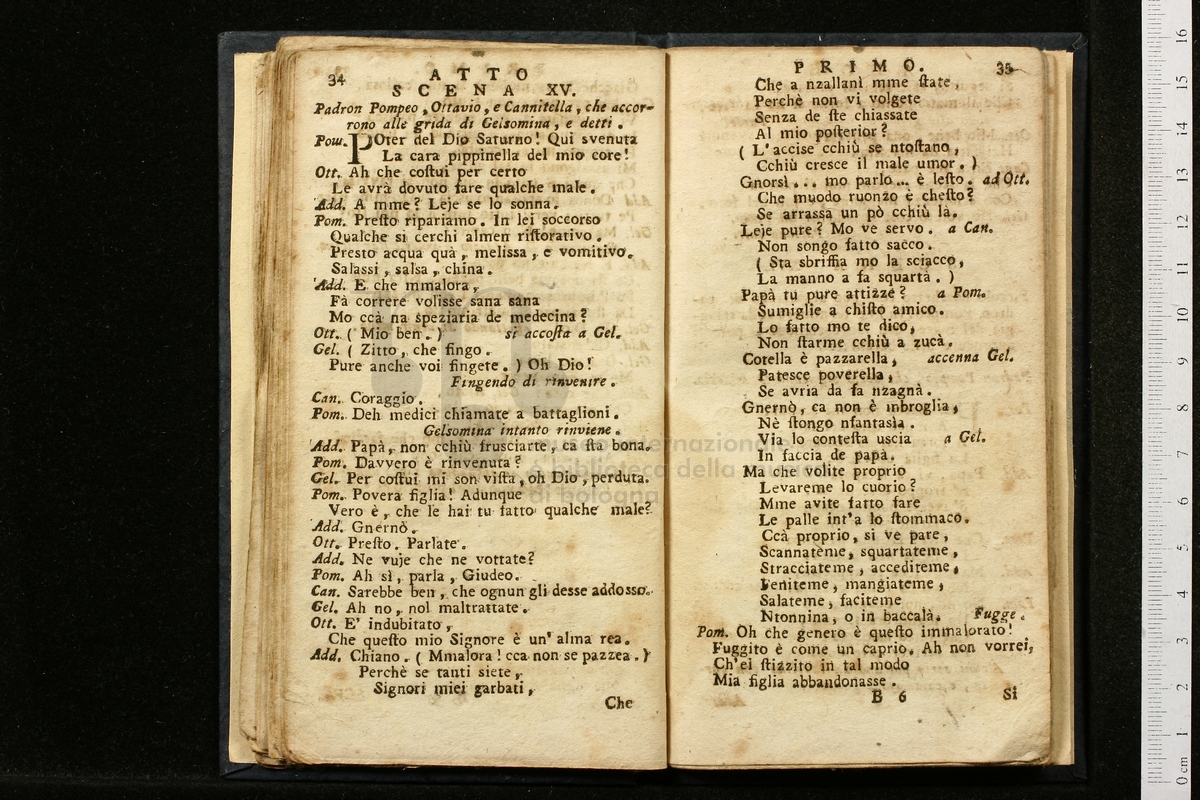 34
ATTO
SCENA XV.
Padron Pompeo, Ottavio, e Cannitella, che accor-
rono alle grida di Gelsomina, e detti.
Pom. POter del Dio Saturno! Qui svenuta
La cara pippinella del mio core!
Ott. Ah che coſtui per certo
Le avrà dovuto fare qualche male.
Add. A mme? Leje se lo sonna.
Pom. Preſto ripariamo. In lei soccorso
Qualche si cerchi almen riſtorativo.
Presto acqua quà, melissa, e vomitivo.
Salassi, salsa, china.
Add. E che mmalora,
Fà correre volisse sana sana
Mo ccà na speziaria de medecina?
Ott. ( Mio ben. ) si accoſta a Gel.
Gel. ( Zitto, che fingo.
Pure anche voi fingete. ) Oh Dio!
Fingendo di rinvenire.
Can. Coraggio.
Pom. Deh medici chiamate a battaglioni.
Gelsomina intanto rinviene.
Add. Papà, non cchiù frusciarte, ca ſta bona.
Pom. Davvero è rinvenuta?
Gel. Per coſtui mi son viſta, oh Dio, perduta.
Pom. Povera figlia! Adunque
Vero è, che le hai tu fatto qualche male?
Add. Gnernò.
Ott. Preſto. Parlate.
Add. Ne vuje che ne vottate?
Pom. Ah sì, parla, Giudeo.
Can. Sarebbe ben, che ognun gli desse addosso.
Gel. Ah no, nol maltrattate.
Ott. E' indubitato,
Che queſto mio Signore è un' alma rea.
Add. Chiano. ( Mmalora! cca non se pazzea. )
Perchè se tanti siete,
Signori miei garbati,
Che
PRIMO. 35
Che a nzallanì mme ſtate,
Perchè non vi volgete
Senza de ſte chiassate
Al mio poſterior?
( L'accise cchiù se ntoſtano,
Cchiù cresce il male umor. )
Gnorsì... mo parlo... è leſto. ad Ott.
Che muodo ruonzo è cheſto?
Se arrassa un pò cchiù là.
Leje pure? Mo ve servo. a Can.
Non songo fatto sacco.
( Sta sbriffia mo la sciacco,
La manno a fa squartà. )
Papà tu pure attizze? a Pom.
Sumiglie a chiſto amico.
Lo fatto mo te dico,
Non ſtarme cchiù a zucà.
Cotella è pazzarella, accenna Gel.
Patesce poverella,
Se avria da fa nzagnà.
Gnernò, ca non è mbroglia,
Nè ſtongo nfantasìa.
Via lo conteſta uscia a Gel.
In faccia de papà.
Ma che volite proprio
Levareme lo cuorio?
Mme avite fatto fare
Le palle int'a lo ſtommaco.
Ccà proprio, si ve pare,
Scannatème, squartateme,
Stracciateme, accediteme,
Veniteme, mangiateme,
Salateme, faciteme
Ntonnina, o in baccalà. Fugge.
Pom. Oh che genero è queſto immalorato!
Fuggito è come un caprio. Ah non vorrei,
Ch'ei ſtizzito in tal modo
Mia figlia abbandonasse.
B 6
Si